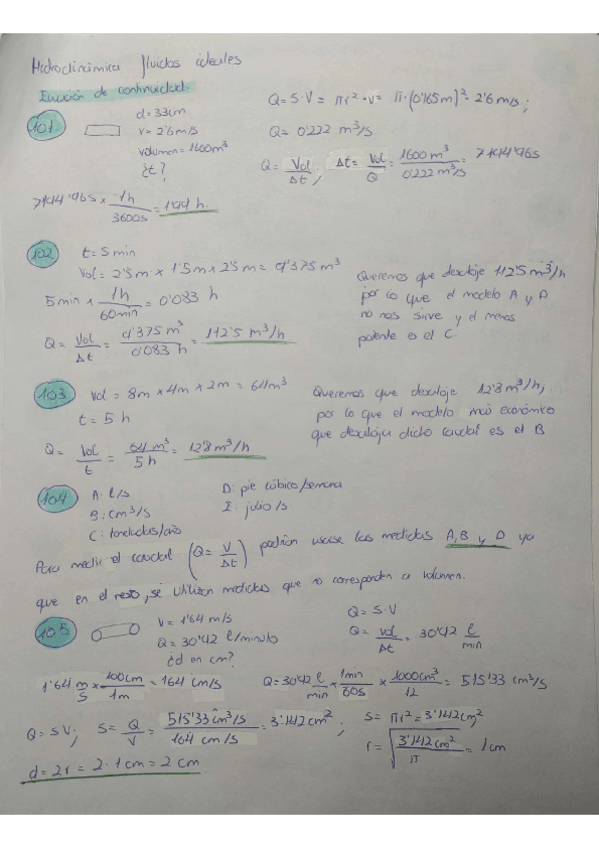 Hidrodinámica fluidos ideales
Ecuación de continuidad:
101 d = 33cm
v = 2'6 m/s
volumen = 1600m³
¿t?
Q = S·V = πr²·v = π·(0'165m)²·2'6 m/s;
Q = 0'222 m³/s
Q = Vol/Δt; Δt = Vol/Q = 1600 m³/0'222 m³/s =
x 1h/3600s =
102 t = 5 min
Vol = 2'5m x 1'5m x 2'5m = 9'375 m³
5 min x 1h/60min = 0'083 h
Q = Vol/Δt = 9'375 m³/0'083 h = 112'5 m³/h
Queremos que desaloje 112'5 m³/h
por lo que el modelo A y D
no nos sirve y el menos
potente es el C
103 Vol = 8m x 4m x 2m = 64m³
t = 5 h
Q = Vol/t = 64 m³/5 h = 12'8 m³/h
Queremos que desaloje 12'8 m³/h,
por lo que el modelo más económico
que desaloja dicho caudal es el B
104 A: l/s
B: cm³/s
C: toneladas/año
D: pie cúbico/semana
E: julio/s
Para medir el caudal (Q = V/Δt) podrían usarse las medidas A, B y D ya
que en el resto, se utilizan medidas que no corresponden a volumen.
105 V = 1'64 m/s
Q = 30'92 l/minuto
¿d en cm?
Q = S·V
Q = Vol/Δt = 30'92 l/min
1'64 m/s x 100cm/1m = 164 cm/s
Q = 30'92 l/min x 1min/60s x 1000cm³/1l = 515'33 cm³/s
Q = S·V; S = Q/V = 515'33 cm³/s / 164 cm/s = 3'142 cm²;
S = πr² = 3'142cm²
r = √3'142cm²/π = 1cm
d = 2r = 2·1cm = 2 cm